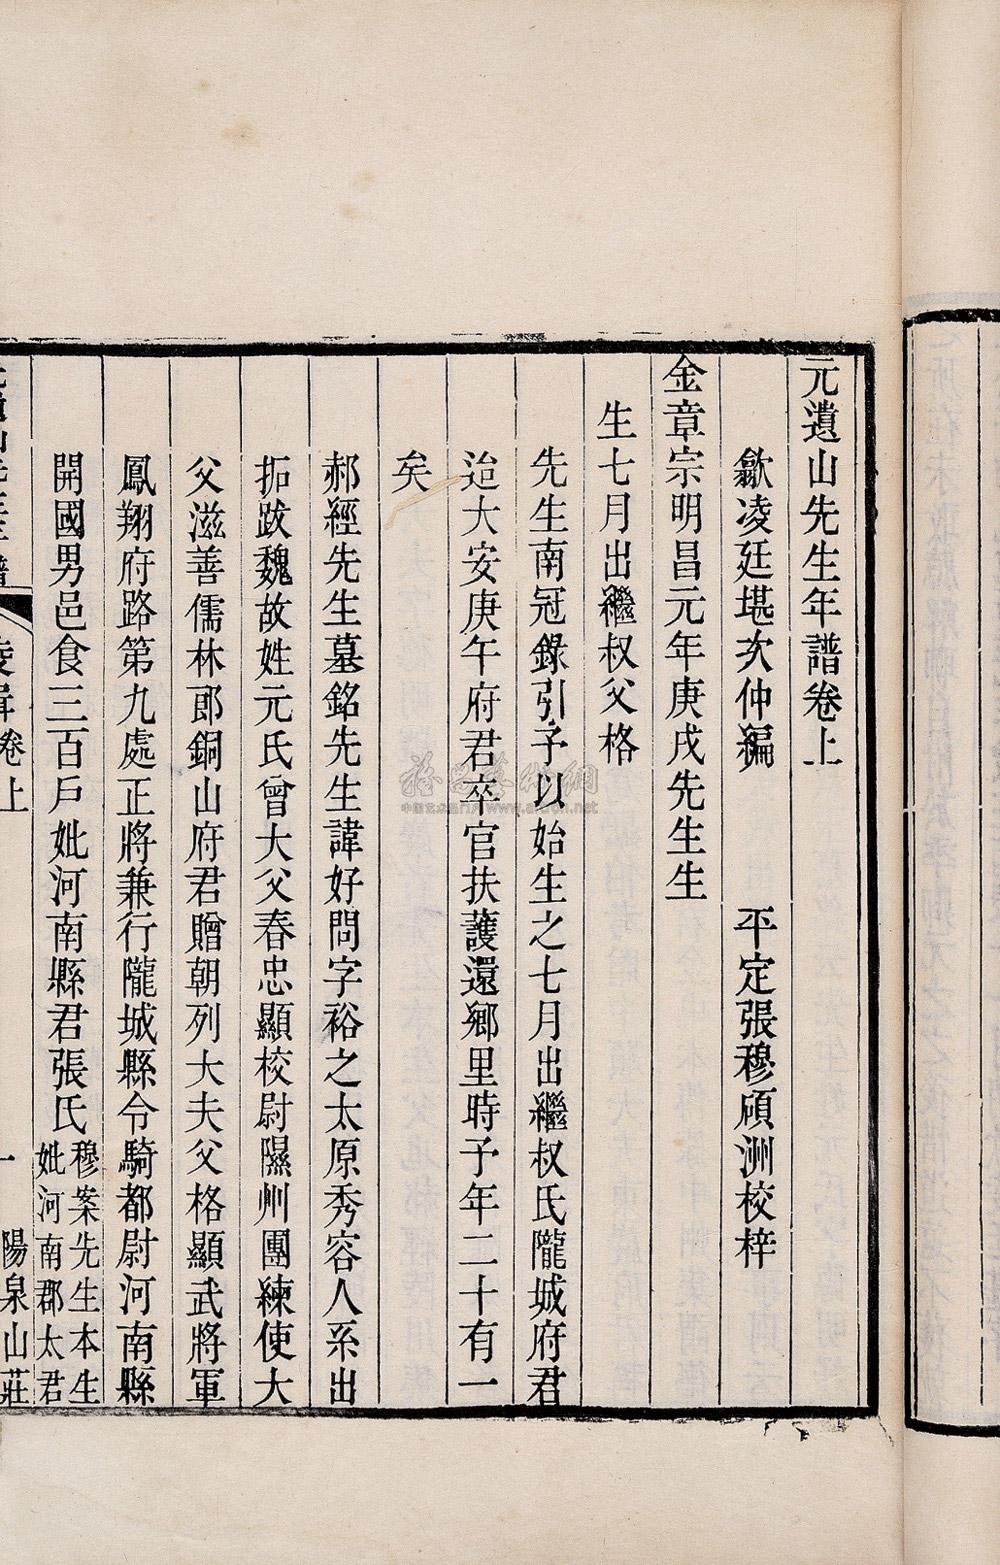 元遺山先生年譜卷上
歙凌廷堪次仲編　平定張穆碩洲校梓
金章宗明昌元年庚戌先生生
生七月出繼叔父格
先生南冠錄引予以始生之七月出繼叔氏隴城府君
迨大安庚午府君卒官扶護還鄉里時予年二十有一
矣
郝經先生墓銘先生諱好問字裕之太原秀容人系出
拓跋魏故姓元氏曾大父春忠顯校尉隰州團練使大
父滋善儒林郎銅山府君贈朝列大夫父格顯武將軍
鳳翔府路第九處正將兼行隴城縣令騎都尉河南縣
開國男邑食三百戶妣河南縣君張氏
穆案先生本生
妣河南郡太君
元遺山先生年譜　凌輯卷上　一　陽泉山莊
www.artron.net